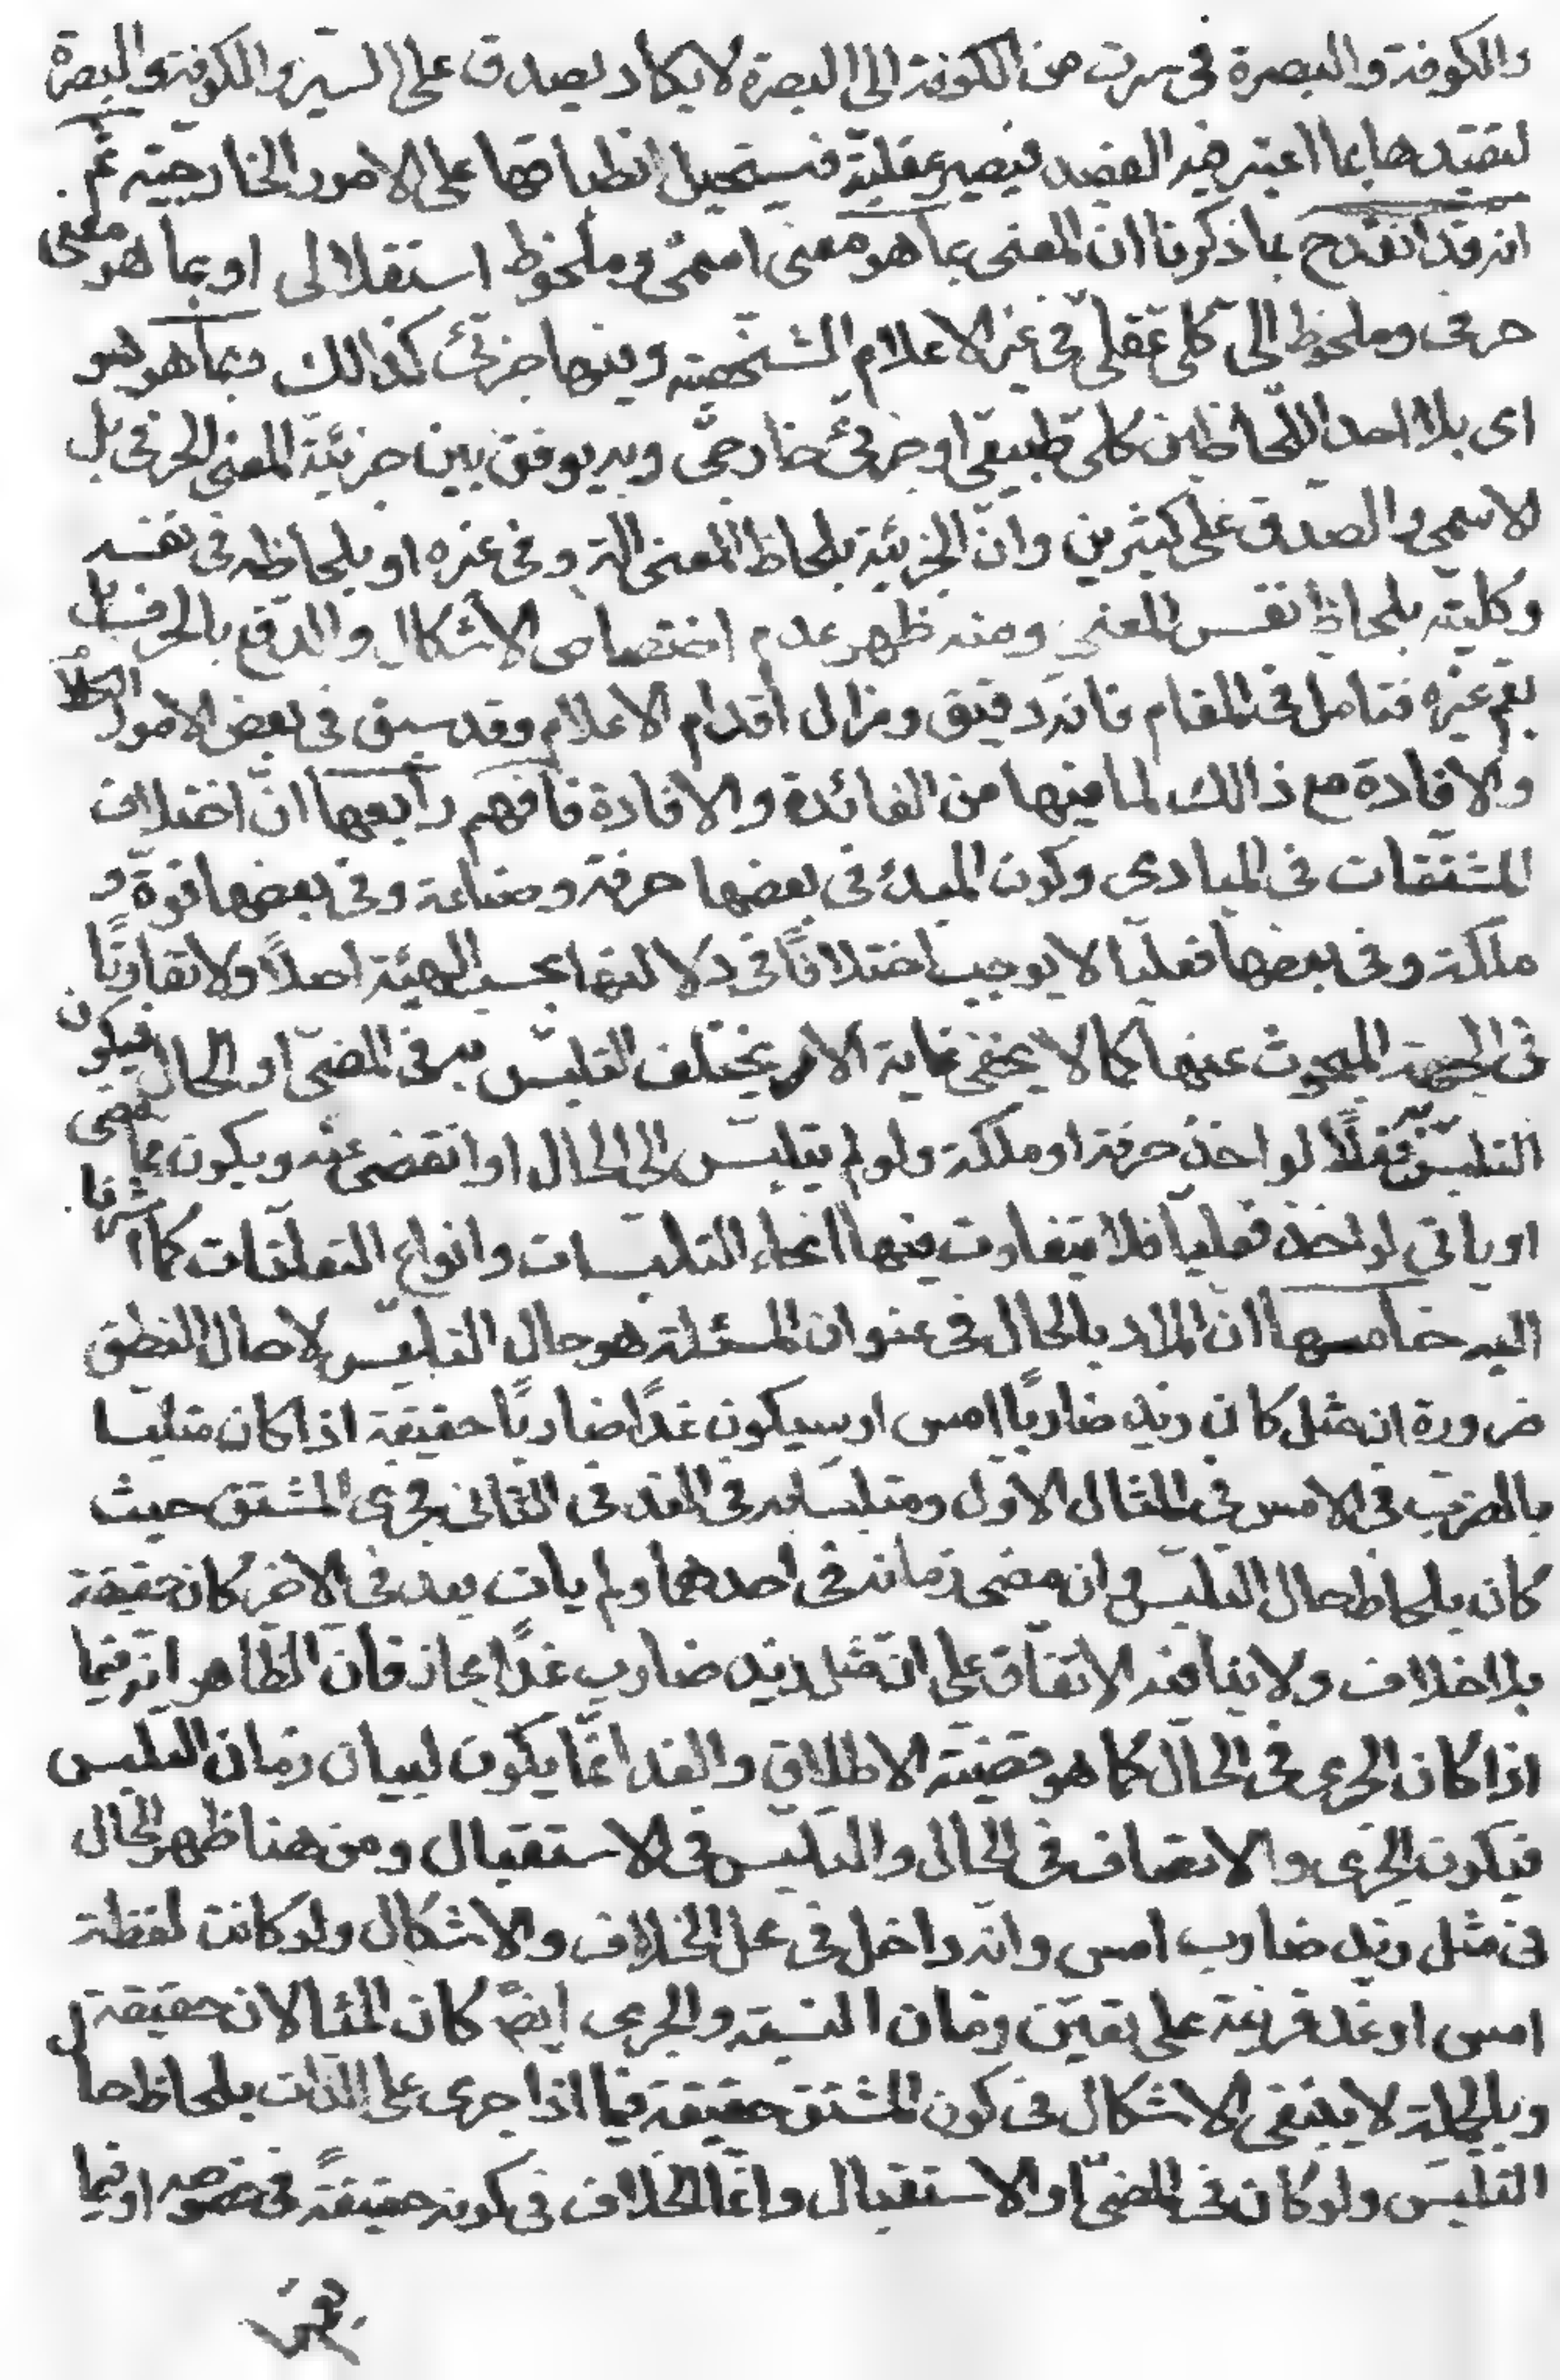 والكوفة والبصرة فى سرت من الكوفة الى البصرة لا يكاد يصدق على السير والكوفة والبصرة
لتقيدها بما اعتبر فيه القصد فيصير عقلية فيستحيل انطباقها على الامور الخارجية ثم
انه قد انقدح بما ذكرنا ان المعنى بما هو معنى اسمى وملحوظ استقلالى او بما هو معنى
حرفى وملحوظ الى كلى عقلى فى غير الاعلام الشخصية وفيها جزئى كذالك وبما هو هو
اى بلا احد اللحاظين كلى طبيعى او جزئى خارجى وبه يوفق بين جزئية المعنى الحرفى بل
الاسمى والصدق على كثيرين وان الجزئية بلحاظ المعنى الة وفى غيره او بلحاظه فى نفسه
وكليته بلحاظ نفس المعنى ومنه ظهر عدم اختصاص الاشكال والدفع بالحرف بل
يعم غيره فتامل فى المقام فانه دقيق ومزال اقدام الاعلام وقد سبق فى بعض الامور
والافادة مع ذالك لما فيها من الفائدة والافادة فافهم رابعها ان اختلاف
المشتقات فى المبادى وكون المبدء فى بعضها حرفة وصناعة وفى بعضها قوة و
ملكة وفى بعضها فعليا لا يوجب اختلافًا فى دلالتها بحسب الهيئة اصلاً ولا تفاوتًا
فى الجهة المبحوث عنها كما لا يخفى غاية الامر يختلف التلبس به فى المضى او الحال فيكون
التلبس به فعلًا لو اخذ حرفة او ملكة ولو لم يتلبس الى الحال او انقضى عنه ويكون مما مضى
او ياتى لو اخذ فعليا فلا يتفاوت فيها انحاء التلبسات وانواع التعلقات كما اشرنا
اليه خامسها ان المراد بالحال فى عنوان المسئلة هو حال التلبس لا حال النطق
ضرورة ان مثل كان زيد ضاربًا امس او سيكون غدًا ضاربًا حقيقة اذا كان متلبسا
بالضرب فى الامس فى المثال الاول ومتلبسا به فى الغد فى الثانى فجرى المشتق حيث
كان بلحاظ حال التلبس وان مضى زمانه فى احدهما ولم يات بعد فى الاخر كان حقيقة
بلا خلاف ولا ينافيه الاتفاق على ان مثل زيد ضارب غدًا مجاز فان الظاهر انه فيما
اذا كان الجرى فى الحال كما هو قضية الاطلاق والغد انما يكون لبيان زمان التلبس
فيكون الجرى والاتصاف فى الحال والتلبس فى الاستقبال ومن هنا ظهر الحال
فى مثل زيد ضارب امس وانه داخل فى محل الخلاف والاشكال ولو كانت لفظة
امس او غد قرينة على تعيين زمان النسبة والجرى ايضً كان المثالان حقيقة
وبالجملة لا ينبغى الاشكال فى كون المشتق حقيقة فيما اذا جرى على الذات بلحاظ حال
التلبس ولو كان فى المضى او الاستقبال وانما الخلاف فى كونه حقيقةً فى خصوصه او فيما